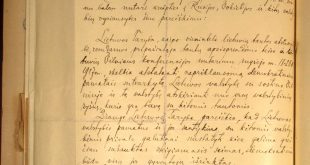 bei ... nutarė kreiptis į Rusijos, Vokietijos ir kitų valstybių vyriausybes šiuo pareiškimu:
Lietuvos Taryba, kaipo vienintelė lietuvių tautos atstovybė,
remdamos pripažintąja tautų apsisprendimo teise ir lietuvių
Vilniaus konferencijos nutarimu rugsėjo m. 18-23 d.
1917 m., skelbia atstatanti nepriklausomą demokratiniais
pamatais sutvarkytą Lietuvos valstybę su sostine
Vilniuje ir tą valstybę atskirianti nuo visų valstybinių
ryšių, kurie yra buvę su kitomis tautomis.
Drauge Lietuvos Taryba pareiškia, kad Lietuvos
valstybės pamatus ir jos santykius su kitomis valstybėmis
privalo galutinai nustatyti kiek galima greičiau
sušauktas steigiamasis seimas, demokratiniu
būdu visų jos gyventojų išrinktas.